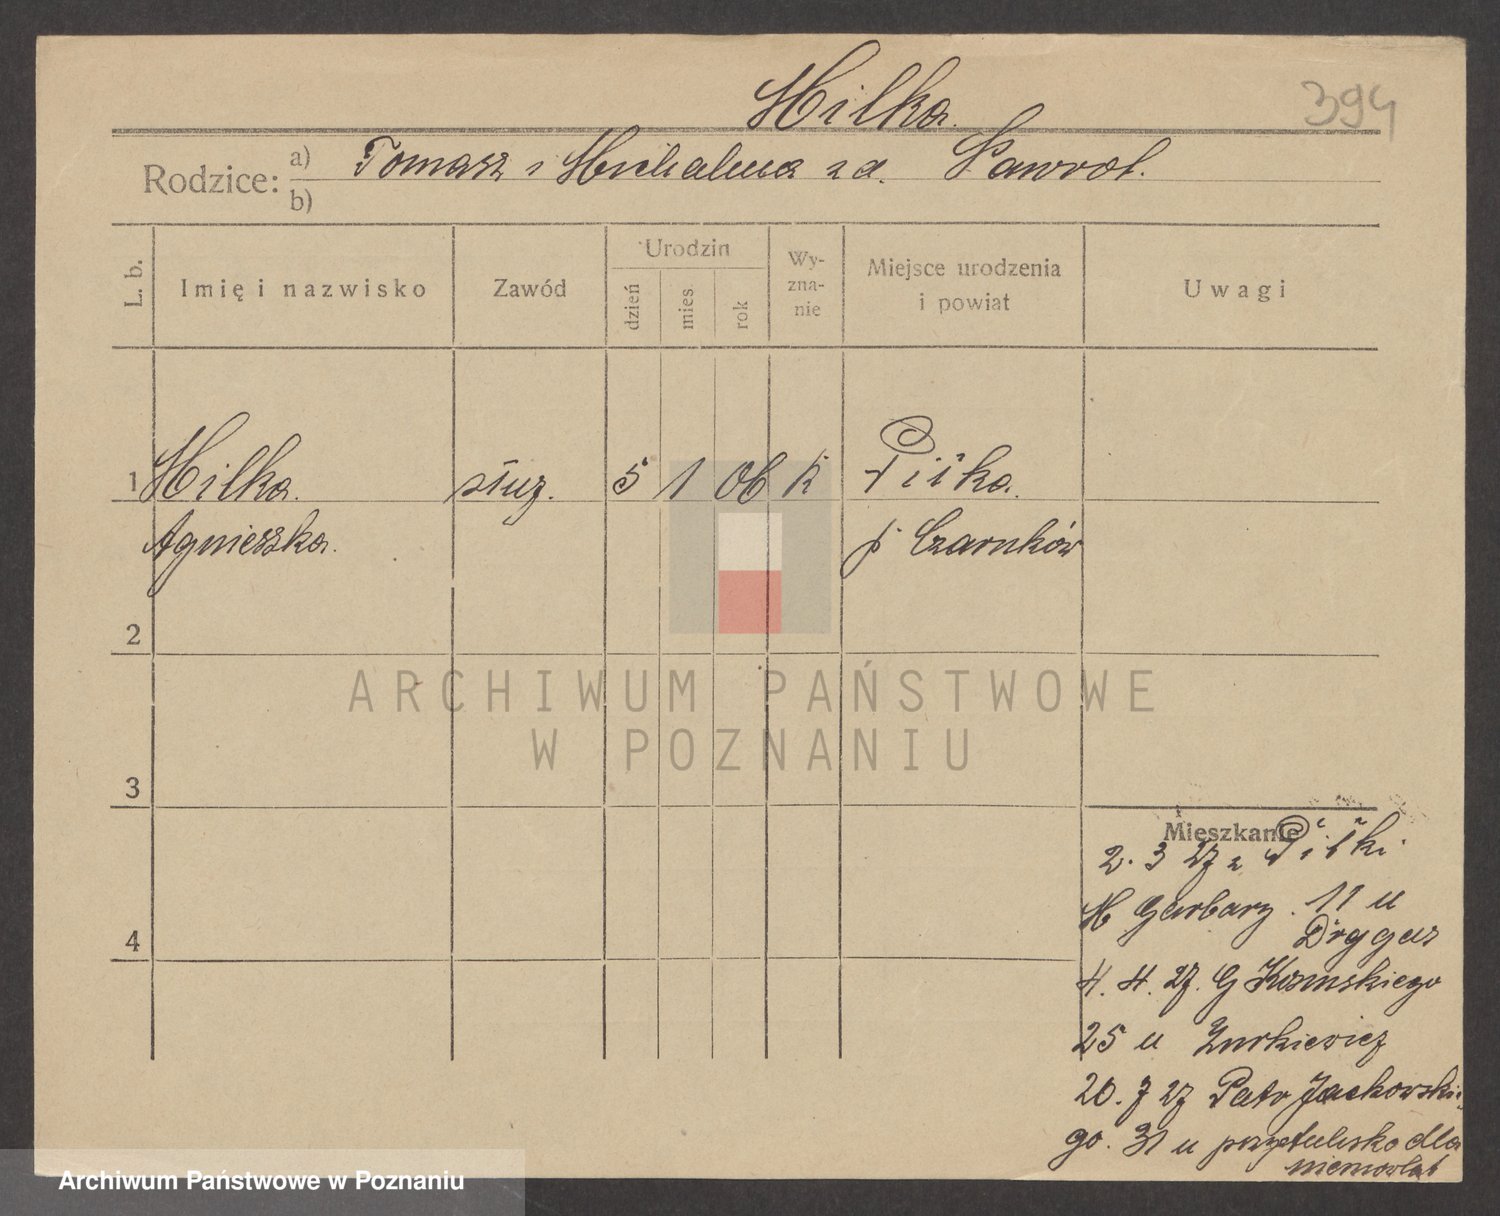 Hilka.
394
Rodzice: a) Tomasz i Michalina z d. Nawrot.
b)
L. b.
Imię i nazwisko
Zawód
Urodzin
dzień
mies
rok
Wy-
zna-
nie
Miejsce urodzenia
i powiat
Uwagi
1 Hilka służ. 5 1 06 k Piłka
Agnieszka p Czarnków
2
ARCHIWUM PAŃSTWOWE
W POZNANIU
3
Mieszkanie
2. 3 27 z Piłki
Garbary 11 u
4
4. 4. 27. G
25 u Żurkiewicz
20. 7 27 Patr Jackowskie-
go. 31 u przytulisko dla
niemowląt
Archiwum Państwowe w Poznaniu